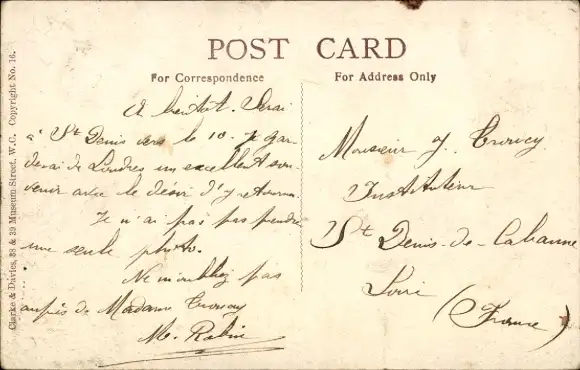 POST CARD
For Correspondence
For Address Only
A bientôt. Serai
à St Denis vers le 10. Je gar
derai de Londres un excellent sou
venir avec le désir d'y
Je n'ai pas pu prendre
une seule photo.
Ne m'oubliez pas
auprès de Madame
M. Robin
Monsieur J.
Instituteur
St Denis-de-Cabanne
Loire
(France)
Clarke & Davies, 38 & 39 Museum Street, W.C. Copyright No. 16.